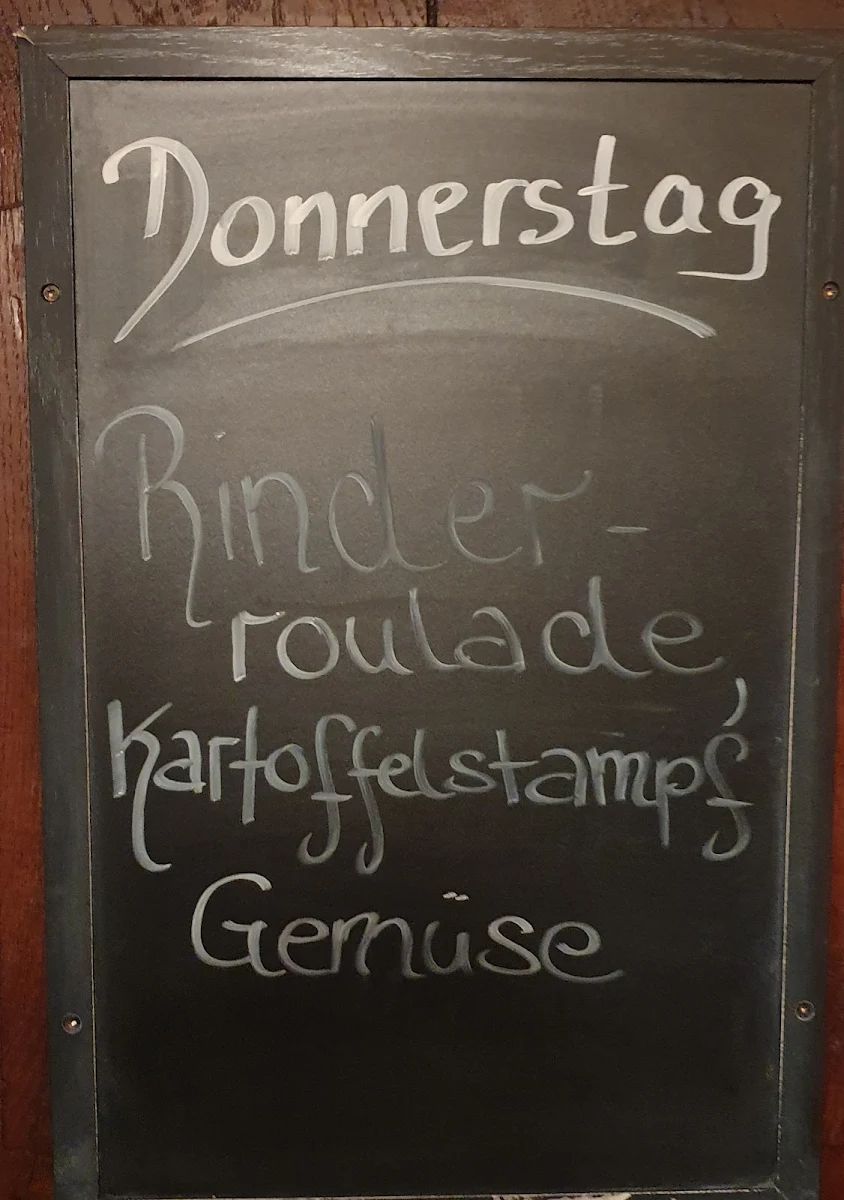 Donnerstag
Rinder-
roulade,
Kartoffelstampf
Gemüse